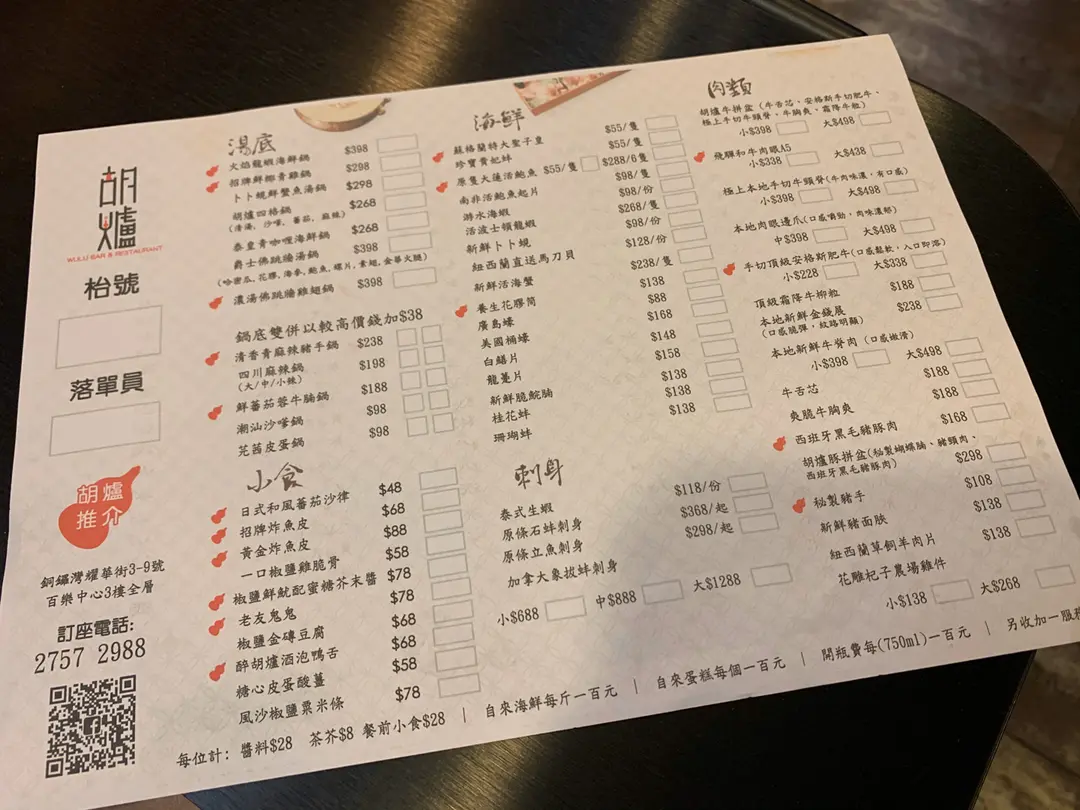 胡爐
WULU BAR & RESTAURANT
枱號
落單員
胡爐
推介
銅鑼灣耀華街3-9號
百樂中心3樓全層
訂座電話:
2757 2988
湯底
火焰龍蝦海鮮鍋 $398
招牌鮮椰青雞鍋 $298
卜卜蜆鮮蟹魚湯鍋 $298
胡爐四格鍋 $268
(清湯, 沙嗲, 蕃茄, 麻辣)
泰皇青咖喱海鮮鍋 $268
爵士佛跳牆湯鍋 $398
(哈密瓜, 花膠, 海參, 鮑魚, 螺片, 素翅, 金華火腿)
濃湯佛跳牆雞翅鍋 $398
鍋底雙併以較高價錢加$38
清香青麻辣豬手鍋 $238
四川麻辣鍋 $198
(大/中/小辣)
鮮蕃茄蓉牛腩鍋 $188
潮汕沙嗲鍋 $98
芫茜皮蛋鍋 $98
小食
日式和風蕃茄沙律 $48
招牌炸魚皮 $68
黃金炸魚皮 $88
一口椒鹽雞脆骨 $58
椒鹽鮮魷配蜜糖芥末醬 $78
老友鬼鬼 $78
椒鹽金磚豆腐 $68
醉胡爐酒泡鴨舌 $68
糖心皮蛋酸薑 $58
風沙椒鹽粟米條 $78
海鮮
蘇格蘭特大聖子皇 $55/隻
珍寶貴妃蚌 $55/隻 $288/6隻
原隻大蓮活鮑魚 $98/隻
南非活鮑魚起片 $98/份
游水海蝦 $268/隻
活波士頓龍蝦 $98/份
新鮮卜卜蜆 $128/份
紐西蘭直送馬刀貝 $238/隻
新鮮活海蟹 $138
養生花膠筒 $88
廣島蠔 $168
美國桶蠔 $148
白鱔片 $158
龍躉片 $138
新鮮脆鯇腩 $138
桂花蚌 $138
珊瑚蚌
刺身
泰式生蝦 $118/份
原條石蚌刺身 $368/起
原條立魚刺身 $298/起
加拿大象拔蚌刺身
小$688 中$888 大$1288
肉類
胡爐牛拼盆 (牛舌芯、安格斯手切肥牛、
極上手切牛頸脊、牛胸爽、霜降牛粒)
小$398 大$498
飛驒和牛肉眼A5
小$338 大$438
極上本地手切牛頸脊(牛肉味濃,有口感)
小$398 大$498
本地肉眼邊爪(口感嚼勁,肉味濃郁)
中$398 大$498
手切頂級安格斯肥牛(口感鬆軟,入口即溶)
小$228 大$338
頂級霜降牛柳粒 $188
本地新鮮金錢展 $238
(口感脆彈,紋路明顯)
本地新鮮牛脊肉 (口感嫩滑)
小$398 大$498
牛舌芯 $188
爽脆牛胸爽 $188
西班牙黑毛豬豚肉 $168
胡爐豚拼盆(秘製蝴蝶腩、豬頸肉、
西班牙黑毛豬豚肉) $298
秘製豬手 $108
新鮮豬面脥 $138
紐西蘭草飼羊肉片 $138
花雕杞子農場雞件
小$138 大$268
每位計: 醬料$28 茶芥$8 餐前小食$28 | 自來海鮮每斤一百元 | 自來蛋糕每個一百元 | 開瓶費每(750ml)一百元 | 另收加一服務